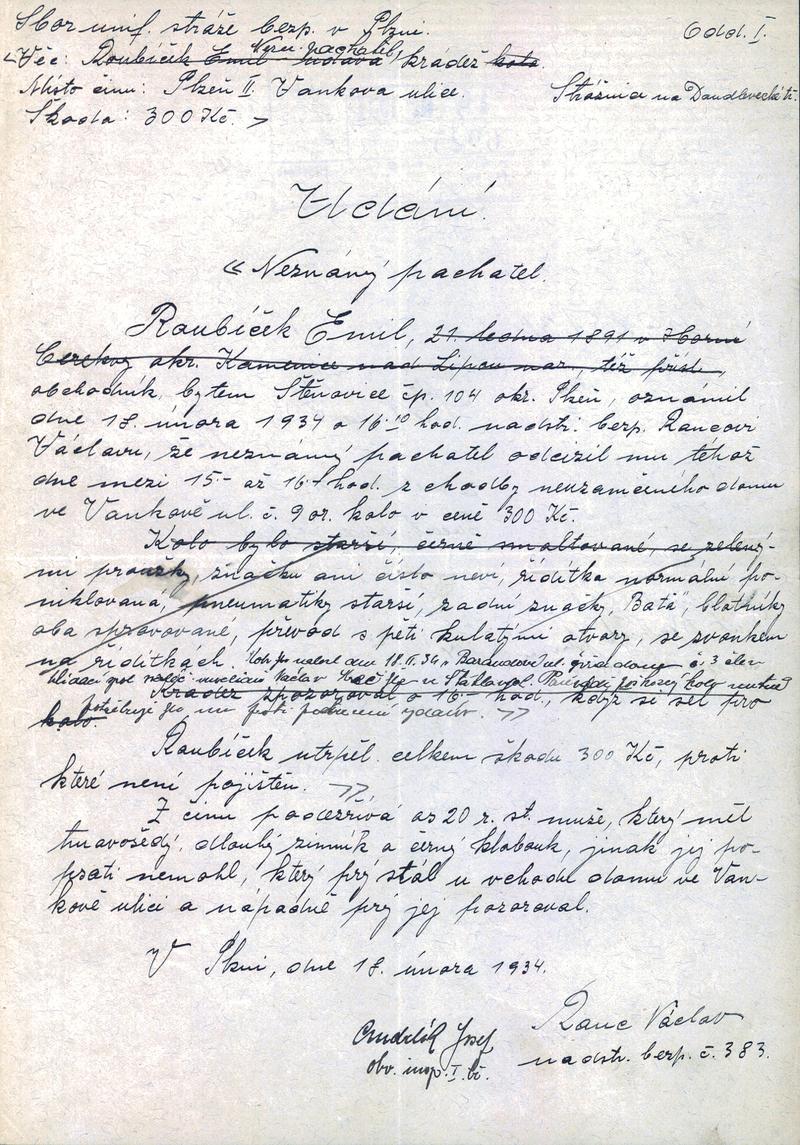 Sbor unif. stráže bezp. v Plzni. Odd. I.
Věc: Roubíček Emil Nezn. pachatel, krádež kola.
Místo činu: Plzeň II. Vankova ulice. Strážnice na Doudlevecké tř.
Škoda: 300 Kč.
Udání.
« Neznámý pachatel.
Roubíček Emil, 21. ledna 1891 v Horní
Cerekvy okr. Kamenice nad Lipou nar., též přísl.,
obchodník, bytem Štěnovice čp. 104 okr. Plzeň, oznámil
dne 18. února 1934 o 16 10 hod. nadstr. bezp. Rancovi
Václavu, že neznámý pachatel odcizil mu téhož
dne mezi 15.- až 16.- hod. z chodby neuzamčeného domu
ve Vankově ul. č. 9 or. kolo v ceně 300 Kč.
Kolo bylo starší, černě smaltované, se zelený-
mi proužky, značku ani číslo neví, řidítka normální po-
niklovaná, pneumatiky starší, zadní značky „Batá", blatníky
oba spravované, převod s pěti kulatými otvory, se zvonkem
na řidítkách. dne 18.II.34 v ul. č. 3
Václav
Krádež zpozoroval o 16.- hod., když si šel pro
kolo.
Roubíček utrpěl celkem škodu 300 Kč, proti
které není pojištěn.
Z činu podezřívá as 20 r. st. muže, který měl
tmavošedý, dlouhý zimník a černý klobouk, jinak jej po-
psati nemohl, který prý stál u vchodu domu ve Van-
kově ulici a nápadně prý jej pozoroval.
V Plzni, dne 18. února 1934.
Josef Ranc Václav
obv. insp. I. tř. nadstr. bezp. č. 383.